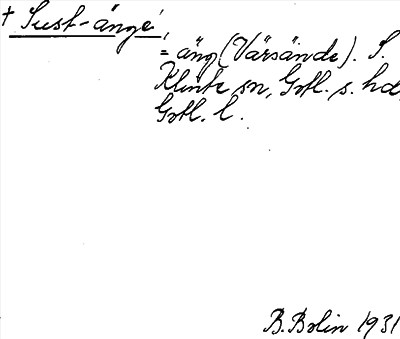 † Sust-änge,
= äng (Värsände). S.
Klinte sn, Gotl. s. hd,
Gotl. l.
B. Bolin 1931